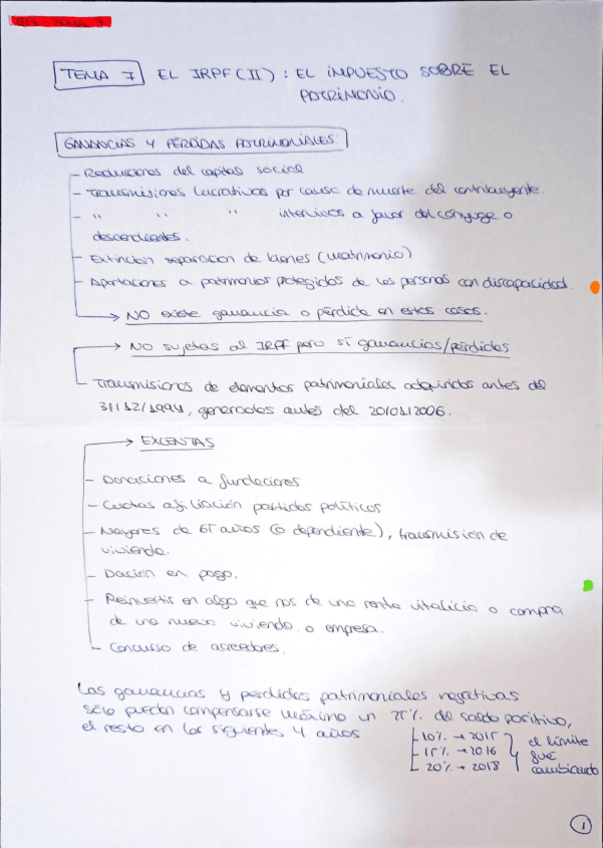 TEMA 7
TEMA 7 EL IRPF (II): EL IMPUESTO SOBRE EL
PATRIMONIO.
GANANCIAS Y PÉRDIDAS PATRIMONIALES:
- Reducciones del capital social
- Transmisiones lucrativas por causa de muerte del contribuyente.
- " " " intervivos a favor del cónyuge o
descendientes.
- Extinción separación de bienes (matrimonio)
- Aportaciones a patrimonios protegidos de las personas con discapacidad.
→ NO existe ganancia o pérdida en estos casos.
→ NO sujetas al IRPF pero sí ganancias/pérdidas
- Transmisiones de elementos patrimoniales adquiridos antes del
31/12/1994, generados antes del 20/01/2006.
→ EXCENTAS
- Donaciones a fundaciones
- Cuotas afiliación partidos políticos
- Mayores de 65 años (o dependiente), transmisión de
vivienda.
- Dación en pago.
- Reinvertir en algo que nos de una renta vitalicia o compra
de una nueva vivienda o empresa.
- Concurso de acreedores.
Las ganancias y perdidas patrimoniales negativas
sólo pueden compensarse máximo un 25% del saldo positivo,
el resto en los siguientes 4 años
10% → 2015
15% → 2016
20% → 2018
el límite
fue
cambiando
1